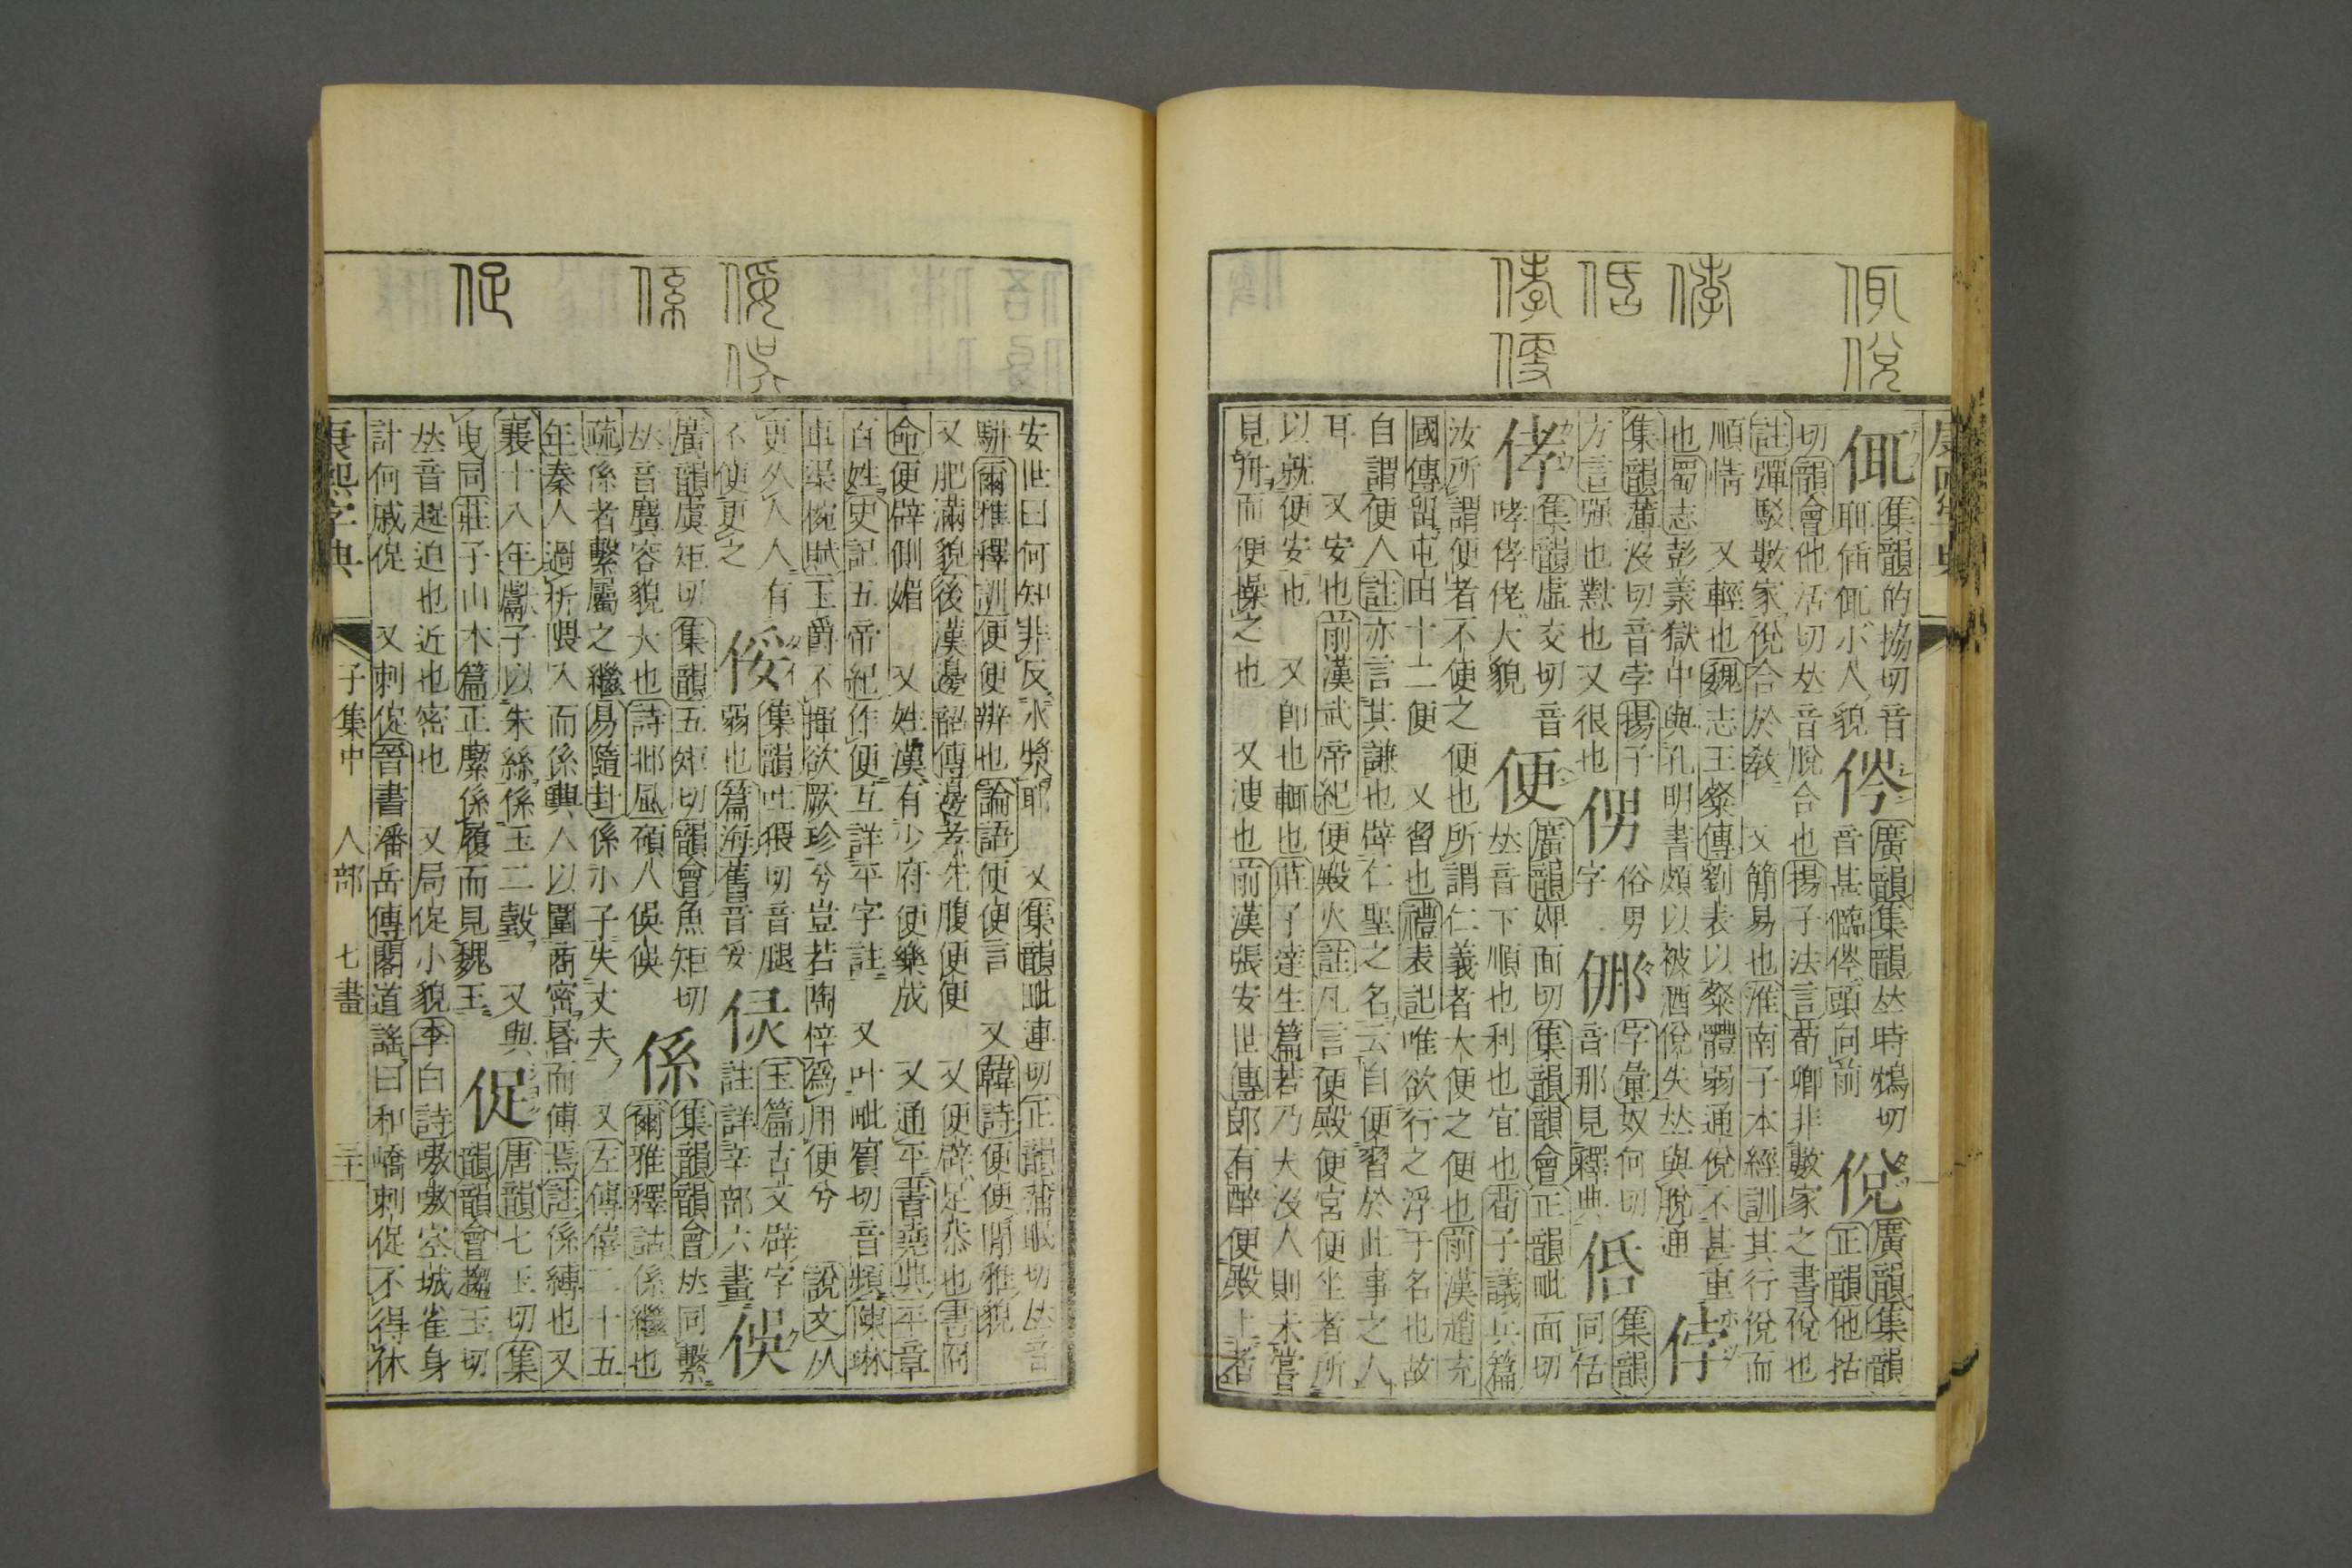 康熙字典
㑙
集韻的協切音
耴偛㑙小人貌
侺
廣韻集韻𠀤時鴆切
音甚儖侺頭向前
侻
廣韻集韻
正韻他括
切韻會他活切𠀤音脫合也揚子法言荀卿非數家之書侻也
註彈駁數家侻合於敎 又簡易也淮南子本經訓其行侻而
順情 又輕也魏志王粲傳劉表以粲體弱通侻不甚重
也蜀志彭羕獄中與孔明書頗以被酒侻失𠀤與脫通
侼
集韻薄没切音孛揚子
方言强也懟也又很也
侽
俗男
字
㑚
字彙奴何切
音那見釋典
集韻
同佸
侾
集韻虛交切音
哮侾佬大貌
便
廣韻婢面切集韻韻會正韻毗面切
𠀤音卞順也利也宜也荀子議兵篇
汝所謂便者不便之便也所謂仁義者大便之便也前漢趙充
國傳留屯田十二便 又習也禮表記唯欲行之浮于名也故
自謂便人註亦言其謙也辟仁聖之名云自便習於此事之人
耳 又安也前漢武帝紀便殿火註凡言便殿便宮便坐者所
以就便安也 又卽也輒也莊子達生篇若乃夫没人則未嘗
見舟而便操之也 又溲也前漢張安世傳郎有醉便殿上者
安世曰何知非反水漿耶 又集韻毗連切正韻蒲眠切𠀤音
騈爾雅釋訓便便辯也論語便便言 又韓詩便便閒雅貌
又肥滿貌後漢邊韶傳邊孝先腹便便 又便辟足恭也書冏
命便辟側媚 又姓漢有少府便樂成 又通平書堯典平章
百姓史記五帝紀作便互詳平字註 又叶毗賓切音頻陳琳
車渠椀賦玉爵不揮欲厥珍兮豈若陶梓爲用便兮 說文从
更㕥人人有
不便更之
俀
集韻吐猥切音腿
弱也篇海舊音妥
玉篇古文辟字
註詳辛部六畫
俁
廣韻虞矩切集韻五矩切韻會魚矩切
𠀤音麌容貌大也詩邶風碩人俁俁
係
集韻韻會𠀤同繫
爾雅釋詁係繼也
疏係者繫屬之繼易隨卦係小子失丈夫 又左傳僖二十五
年秦人過析隈入而係輿人以圍商密昏而傅焉註係縛也又
襄十八年獻子以朱絲係玉二瑴 又與
曳同莊子山木篇正緳係履而見魏王
促
唐韻七玉切集
韻韻會趨玉切
𠀤音趗迫也近也密也 又局促小貌李白詩嗷嗷空城雀身
計何戚促 又刺促晉書潘岳傳閣道謠曰和嶠刺促不得休
康熙字典 子集中 人部 七畫 三十